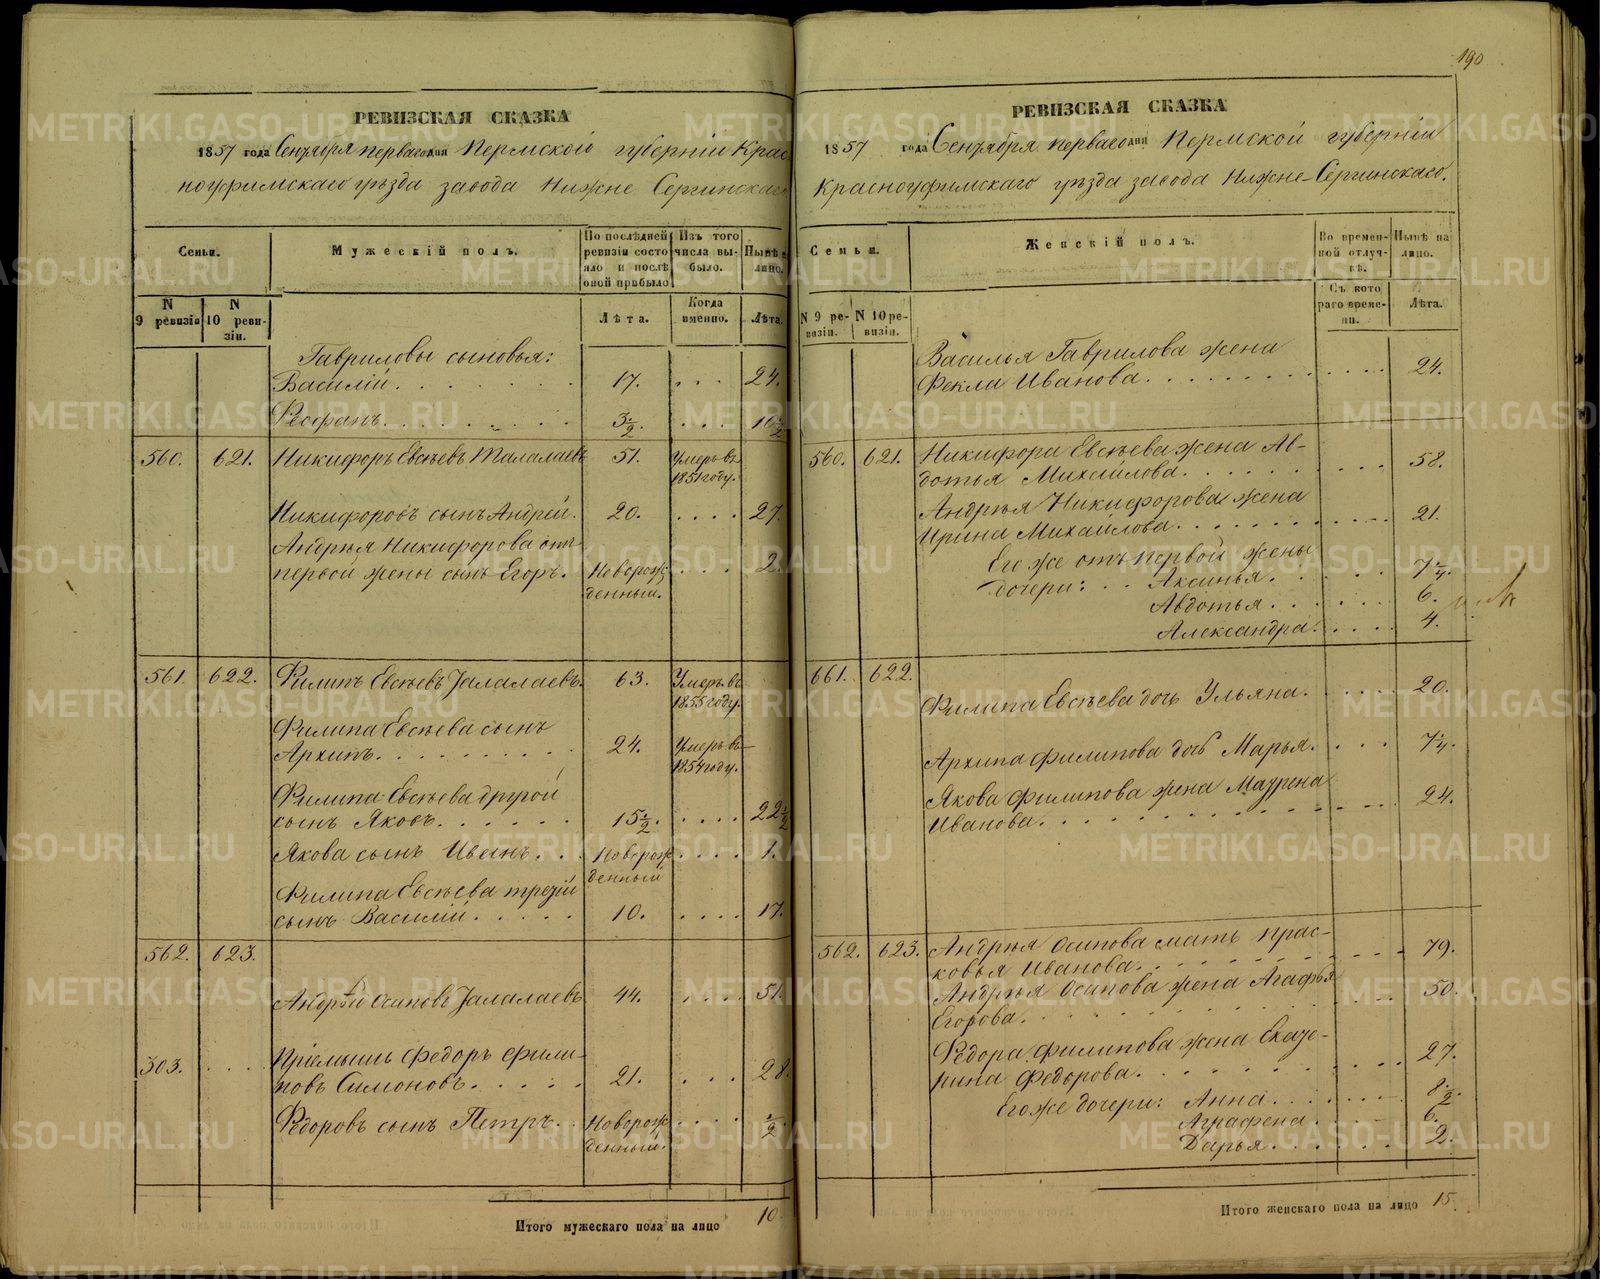 190
РЕВИЗСКАЯ СКАЗКА
1857 года Сентября перваго дня Пермской губерніи Крас
ноуфимскаго уѣзда завода Нижне Сергинскаго
Семьи.
Мужескій полъ.
По послѣдней ревизіи состояло и послѣ оной прибыло
Изъ того числа выбыло.
Нынѣ лицо.
N 9 ревизіи
N 10 ревизіи.
Лѣта.
Когда именно.
Лѣта.
Гавриловы сыновья:
Василій. 17. 24.
Феофанъ. 3½. 10½
560. 621. Никифоръ Евсѣевъ Талалаевъ 51. Умеръ въ
1851 году.
Никифоровъ сынъ Андрей. 20. 27.
Андрея Никифорова отъ
первой жены сынъ Егоръ. Новорож 2.
денный.
561. 622. Филипъ Евсѣевъ Талалаевъ. 63. Умеръ въ
1855 году.
Филипа Евсѣева сынъ
Архипъ. 24. Умеръ въ
1854 году.
Филипа Евсѣева другой
сынъ Яковъ. 15½. 22½
Якова сынъ Иванъ. Новорож 1.
денный
Филипа Евсѣева третій
сынъ Василій. 10. 17.
562. 623.
Андрей Осиповъ Талалаевъ 44. 51.
303. Пріемышъ Федоръ Фили-
повъ Симоновъ. 21. 28.
Федоровъ сынъ Петръ. Новорож ½
денный.
Итого мужескаго пола на лицо 10.
РЕВИЗСКАЯ СКАЗКА
1857 года Сентября перваго дня Пермской губерніи
Красноуфимскаго уѣзда завода Нижне-Сергинскаго.
Семьи.
Женскій полъ.
Во временной отлучкѣ.
Нынѣ на лицо.
N 9 ревизіи.
N 10 ревизіи.
Съ котораго времени.
Лѣта.
Василья Гаврилова жена
Фекла Иванова. 24.
560. 621. Никифора Евсѣева жена Ав-
дотья Михайлова. 58.
Андрея Никифорова жена
Ирина Михайлова. 21.
Его же отъ первой жены
дочери: Аксинья. 7¼.
Авдотья. 6.
Александра. 4.
661. 622.
Филипа Евсѣева дочь Ульяна. 20.
Архипа Филипова дочь Марья. 7¼.
Якова Филипова жена Маурена
Иванова. 24.
562. 623. Андрея Осипова мать Прас-
ковья Иванова. 79.
Андрея Осипова жена Агафья
Егорова. 50.
Федора Филипова жена Екате-
рина Федорова. 27.
Его же дочери: Анна. 8½.
Аграфена. 6.
Дарья. 2.
Итого женскаго пола на лицо 15.
METRIKI.GASO-URAL.RU